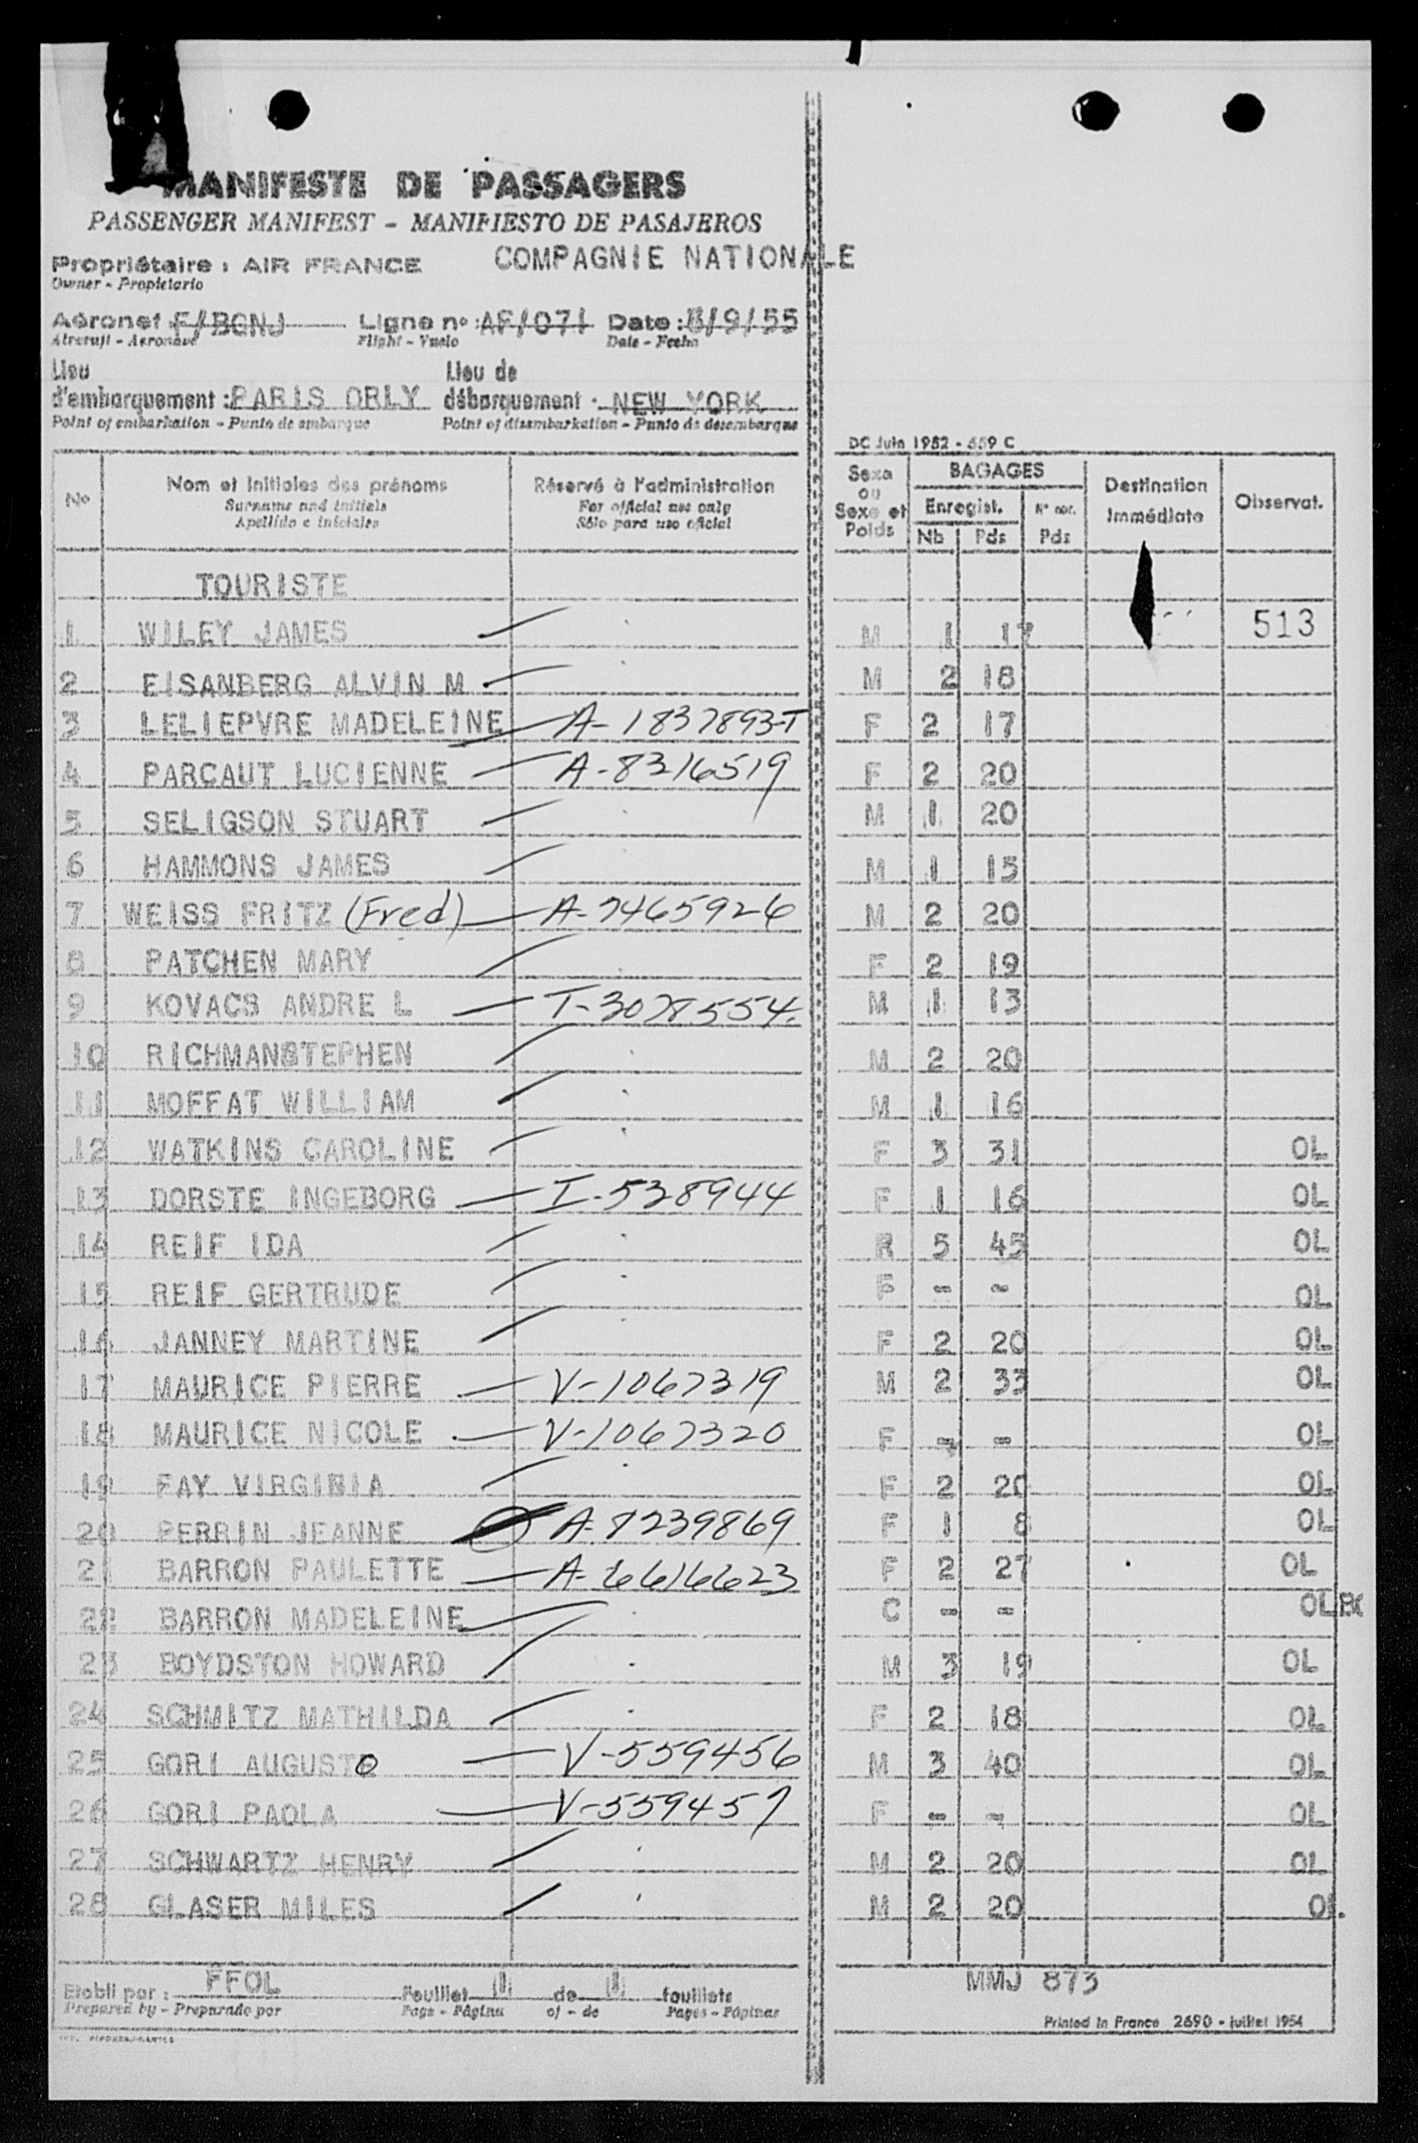 MANIFESTE DE PASSAGERS
PASSENGER MANIFEST - MANIFIESTO DE PASAJEROS
Propriétaire : AIR FRANCE COMPAGNIE NATIONALE
Owner - Propietario
Aéronef : F/BGNJ Ligne no : AF/071 Date : /9/55
Aircraft - Aeronave Flight - Vuelo Date - Fecha
Lieu Lieu de
d'embarquement : PARIS ORLY débarquement : NEW YORK
Point of embarkation - Punto de embarque Point of disembarkation - Punto de desembarque
DC Juin 1952 - 559 C
No Nom et initiales des prénoms Réservé à l'administration Sexe ou Sexe et Poids BAGAGES Destination immédiate Observat.
Surname and initials For official use only Enregist. N° enr.
Apellido e iniciales Sólo para uso oficial Nb Pds Pds
TOURISTE
1 WILEY JAMES M 1 17 513
2 EISANBERG ALVIN M M 2 18
3 LELIEPVRE MADELEINE A-1837893-T F 2 17
4 PARCAUT LUCIENNE A-8316519 F 2 20
5 SELIGSON STUART M 1 20
6 HAMMONS JAMES M 1 15
7 WEISS FRITZ (Fred) A-7465926 M 2 20
8 PATCHEN MARY F 2 19
9 KOVACS ANDRE L T-3078554. M 1 13
10 RICHMANSTEPHEN M 2 20
11 MOFFAT WILLIAM M 1 16
12 WATKINS CAROLINE F 3 31 OL
13 DORSTE INGEBORG I-538944 F 1 16 OL
14 REIF IDA R 5 45 OL
15 REIF GERTRUDE F - - OL
16 JANNEY MARTINE F 2 20 OL
17 MAURICE PIERRE V-1067319 M 2 33 OL
18 MAURICE NICOLE V-1067320 F - - OL
19 FAY VIRGINIA F 2 20 OL
20 PERRIN JEANNE A-8239869 F 1 8 OL
21 BARRON PAULETTE A-6616623 F 2 27 OL
22 BARRON MADELEINE C - - OL
23 BOYDSTON HOWARD M 3 19 OL
24 SCHMITZ MATHILDA F 2 18 OL
25 GORI AUGUSTO V-559456 M 3 40 OL
26 GORI PAOLA V-559457 F - - OL
27 SCHWARTZ HENRY M 2 20 OL
28 GLASER MILES M 2 20 OL
Etabli par : FFOL Feuillet 1 de 1 feuillets MMJ 873
Prepared by - Preparado por Page - Página of - de Pages - Páginas
Printed in France 2690 - juillet 1954